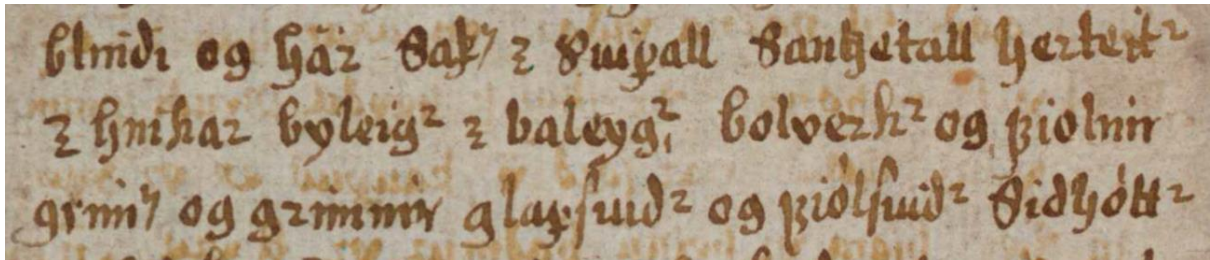 blindi og här Sakꝛ ꝛ Suipall Sanhetall herteitꝛ
ꝛ hnikar byleigꝛ ꝛ baleygꝛ, bolverkꝛ og þiolnir
grimꝛ og grimnir glapsuidꝛ og þiolsuidꝛ Sidhóttꝛ